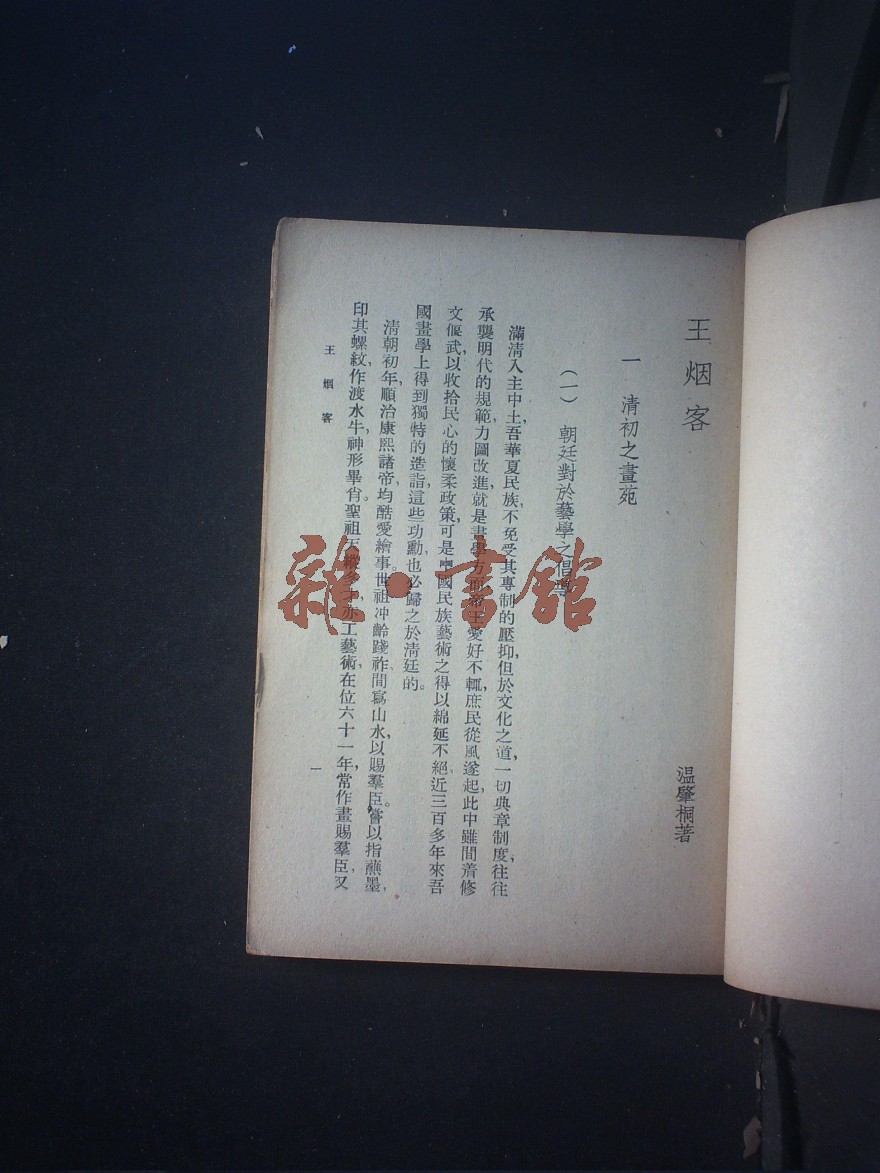 王烟客
温肇桐著
一 清初之畫苑
（一） 朝廷對於藝學之倡導
滿清入主中土，吾華夏民族，不免受其專制的壓抑但於文化之道，一切典章制度，往往
承襲明代的規範，力圖改進，就是畫學方面，帝王愛好不輒，庶民從風遂起，此中雖間着修
文偃武，以收拾民心的懷柔政策，可是中國民族藝術之得以綿延不絕，近三百多年來，吾
國畫學上得到獨特的造詣，這些功勳，也必歸之於清廷的。
清朝初年，順治康熙諸帝，均酷愛繪事。世祖冲齡踐祚，間寫山水，以賜羣臣。嘗以指蘸墨，
印其螺紋，作渡水牛，神形畢肖。聖祖天縱多才，亦工藝術，在位六十一年，常作畫賜羣臣，又
王烟客
一
雜·書館